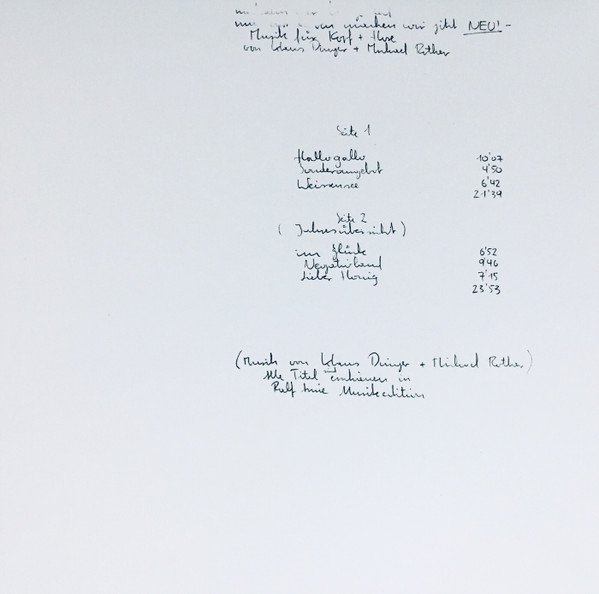 wir jetzt NEU! -
Musik für Kopf + Hose
von Klaus Dinger + Michael Rother
Seite 1
Hallogallo 10'07
Sonderangebot 4'50
Weissensee 6'42
21'39
Seite 2
(Jahresübersicht)
im Glück 6'52
Negativland 9'46
Lieber Honig 7'15
23'53
(Musik von Klaus Dinger + Michael Rother)
Alle Titel erschienen in
Ralf Musikedition